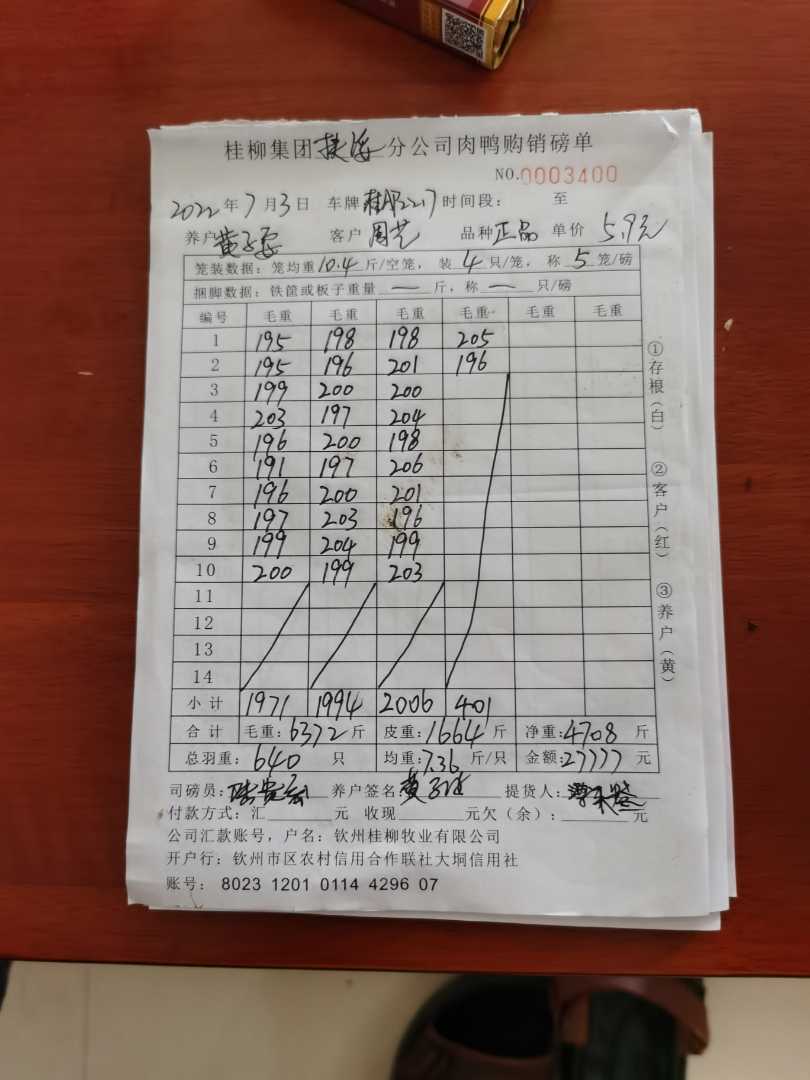 桂柳集团 分公司肉鸭购销磅单
NO.0003400
2022年7月3日 车牌 时间段： 至
养户 黄 客户 周艺 品种 正品 单价 5.9元
笼装数据：笼均重10.4斤/空笼，装4只/笼，称5笼/磅
捆脚数据：铁筐或板子重量 — 斤，称 — 只/磅
编号 毛重 毛重 毛重 毛重 毛重 毛重
1 195 198 198 205
2 195 196 201 196
3 199 200 200
4 203 197 204
5 196 200 198
6 191 197 206
7 196 200 201
8 197 203 196
9 199 204 199
10 200 199 203
11
12
13
14
小计 1971 1994 2006 401
合计 毛重：6372斤 皮重：1664斤 净重：4708斤
总羽重：640只 均重：7.36斤/只 金额：27777元
司磅员： 养户签名：黄 提货人：
付款方式：汇 元 收现 元欠（余）： 元
公司汇款账号，户名：钦州桂柳牧业有限公司
开户行：钦州市区农村信用合作联社大垌信用社
账号： 8023 1201 0114 4296 07
①存根（白）
②客户（红）
③养户（黄）